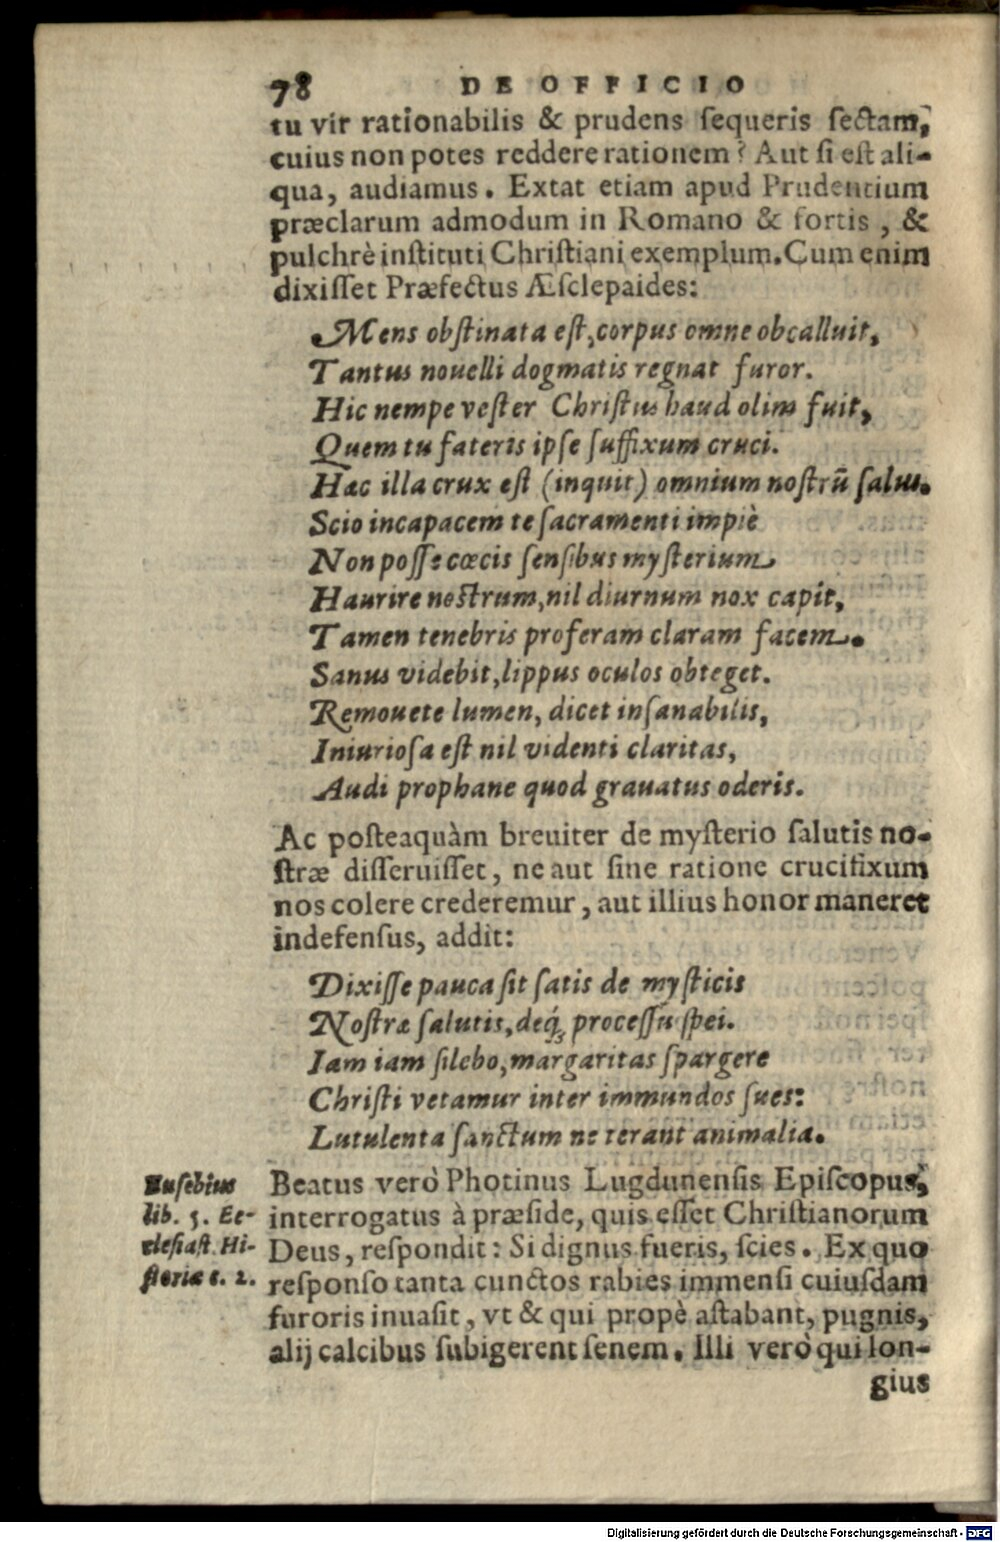 78 DE OFFICIO
tu vir rationabilis & prudens ſequeris ſectam,
cuius non potes reddere rationem? Aut ſi eſt ali-
qua, audiamus. Extat etiam apud Prudentium
præclarum admodum in Romano & fortis, &
pulchrè inſtituti Chriſtiani exemplum. Cum enim
dixiſſet Præfectus Æſclepaides:
Mens obſtinata eſt, corpus omne obcalluit,
Tantus nouelli dogmatis regnat furor.
Hic nempe veſter Chriſtus haud olim fuit,
Quem tu fateris ipſe ſuffixum cruci.
Hæc illa crux eſt (inquit) omnium noſtrū ſalus.
Scio incapacem te ſacramenti impiè
Non poſſe cœcis ſenſibus myſterium
Haurire noſtrum, nil diurnum nox capit,
Tamen tenebris proferam claram facem.
Sanus videbit, lippus oculos obteget.
Remouete lumen, dicet inſanabilis,
Iniurioſa eſt nil videnti claritas,
Audi prophane quod grauatus oderis.
Ac poſteaquàm breuiter de myſterio ſalutis no-
ſtræ diſſeruiſſet, ne aut ſine ratione crucifixum
nos colere crederemur, aut illius honor maneret
indefenſus, addit:
Dixiſſe pauca ſit ſatis de myſticis
Noſtræ ſalutis, deq́; proceſſu ſpei.
Iam iam ſilebo, margaritas ſpargere
Chriſti vetamur inter immundos ſues:
Lutulenta ſanctum ne terant animalia.
Euſebius
lib. 5. Ec-
cleſiaſt. Hi-
ſtoriæ c. 2.
Beatus verò Photinus Lugdunenſis Epiſcopus,
interrogatus à præſide, quis eſſet Chriſtianorum
Deus, reſpondit: Si dignus fueris, ſcies. Ex quo
reſponſo tanta cunctos rabies immenſi cuiuſdam
furoris inuaſit, vt & qui propè aſtabant, pugnis,
alij calcibus ſubigerent ſenem. Illi verò qui lon-
gius
Digitalisierung gefördert durch die Deutsche Forschungsgemeinschaft - DFG